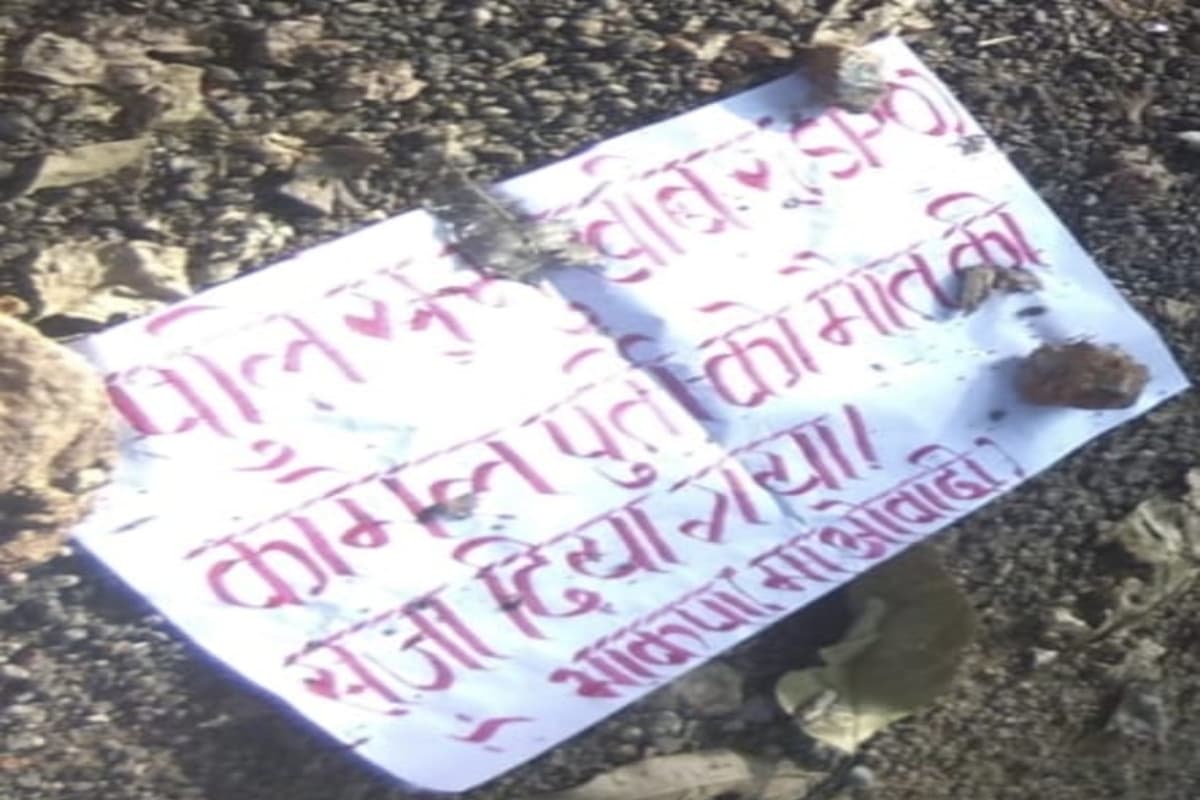 पोलिस मुखबीर (SPO)
कोमल पुर्ती को मौत की
सजा दिया गया।
भाकपा (माओवादी)